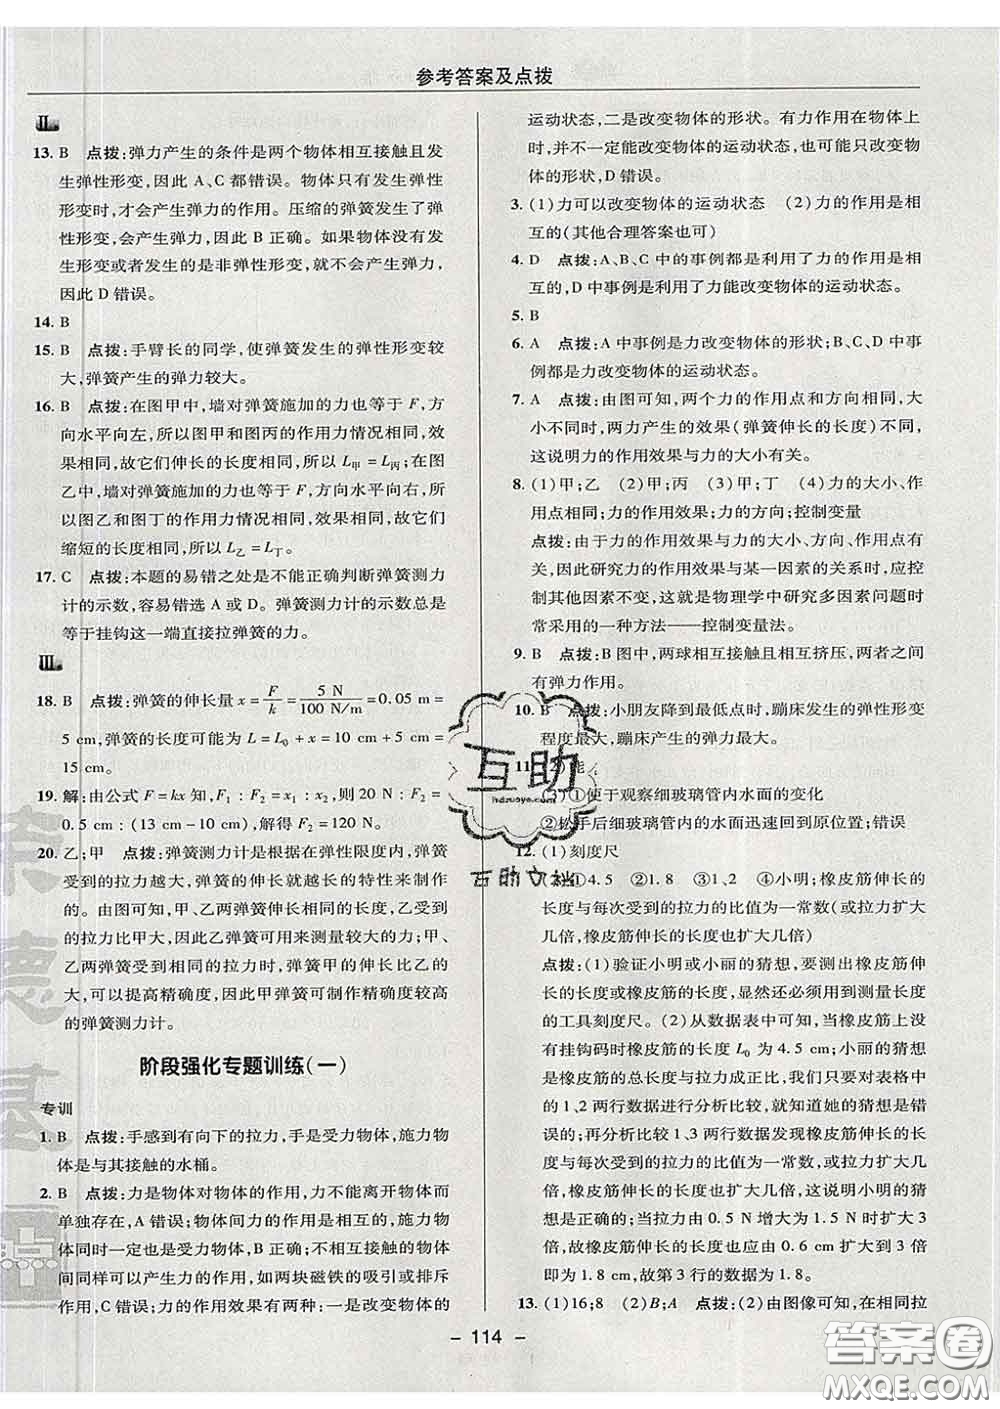 参考答案及点拨
Ⅱ
13. B 点拨:弹力产生的条件是两个物体相互接触且发
生弹性形变，因此 A、C 都错误。物体只有发生弹性
形变时，才会产生弹力的作用。压缩的弹簧发生了弹
性形变，会产生弹力，因此 B 正确。如果物体没有发
生形变或者发生的是非弹性形变，就不会产生弹力，
因此 D 错误。
14. B
15. B 点拨:手臂长的同学，使弹簧发生的弹性形变较
大，弹簧产生的弹力较大。
16. B 点拨:在图甲中，墙对弹簧施加的力也等于 F，方
向水平向左，所以图甲和图丙的作用力情况相同，效
果相同，故它们伸长的长度相同，所以 L甲＝L丙；在图
乙中，墙对弹簧施加的力也等于 F，方向水平向右，所
以图乙和图丁的作用力情况相同，效果相同，故它们
缩短的长度相同，所以 L乙＝L丁。
17. C 点拨:本题的易错之处是不能正确判断弹簧测力
计的示数，容易错选 A 或 D。弹簧测力计的示数总是
等于挂钩这一端直接拉弹簧的力。
Ⅲ
18. B 点拨:弹簧的伸长量 x＝F/k＝5 N/100 N/m＝0.05 m＝
5 cm，弹簧的长度可能为 L＝L0＋x＝10 cm＋5 cm＝
15 cm。
19. 解:由公式 F＝kx 知，F1∶F2＝x1∶x2，则 20 N∶F2＝
0.5 cm∶(13 cm－10 cm)，解得 F2＝120 N。
20. 乙；甲 点拨:弹簧测力计是根据在弹性限度内，弹簧
受到的拉力越大，弹簧的伸长就越长的特性来制作
的。由图可知，甲、乙两弹簧伸相同的长度，乙受到
的拉力比甲大，因此乙弹簧可用来测量较大的力；甲、
乙两弹簧受到相同的拉力时，弹簧甲的伸长比乙的
大，可以提高精确度，因此甲弹簧可制作精确度较高
的弹簧测力计。
阶段强化专题训练(一)
专训
1. B 点拨:手感到有向下的拉力，手是受力物体，施力物
体是与其接触的水桶。
2. B 点拨:力是物体对物体的作用，力不能离开物体而
单独存在，A 错误；物体间力的作用是相互的，施力物
体同时一定也是受力物体，B 正确；不相互接触的物体
间同样可以产生力的作用，如两块磁铁的吸引或排斥
作用，C 错误；力的作用效果有两种:一是改变物体的
运动状态，二是改变物体的形状。有力作用在物体上
时，并不一定能改变物体的运动状态，也可能只改变物
体的形状，D 错误。
3. (1)力可以改变物体的运动状态 (2)力的作用是相
互的(其他合理答案也可)
4. D 点拨:A、B、C 中的事例都是利用了力的作用是相
互的，D 中事例是利用了力能改变物体的运动状态。
5. B
6. A 点拨:A 中事例是力改变物体的形状；B、C、D 中事
例都是力改变物体的运动状态。
7. A 点拨:由图可知，两个力的作用点和方向相同，大
小不同时，两力产生的效果(弹簧伸长的长度)不同，
这说明力的作用效果与力的大小有关。
8. (1)甲；乙 (2)甲；丙 (3)甲；丁 (4)力的大小、作
用点相同；力的作用效果；力的方向；控制变量
点拨:由于力的作用效果与力的大小、方向、作用点有
关，因此研究力的作用效果与某一因素的关系时，应
控制其他因素不变，这是物理学中研究多因素问题时
常采用的一种方法——控制变量法。
9. B 点拨:B 图中，两球相互接触且相互挤压，两者之间
有弹力作用。
10. B 点拨:小朋友降到最低点时，蹦床发生的弹性形变
程度最大，蹦床产生的弹力最大。
11. (2)能
(3)①便于观察细玻璃管内水面的变化
②松手后细玻璃管内的水面迅速回到原位置；错误
12. (1)刻度尺
(2)①4.5 ②1.8 ③1、2 ④小明；橡皮筋伸长的
长度与每次受到的拉力的比值为一常数(或拉力扩大
几倍，橡皮筋伸长的长度也扩大几倍)
点拨:(1)验证小明或小丽的猜想，要测出橡皮筋伸
长的长度或橡皮筋的长度，显然还必须用到测量长度
的工具刻度尺。(2)从数据表中可知，当橡皮筋下没
有挂钩码时橡皮筋的长度 L0 为 4.5 cm；小丽的猜想
是橡皮筋的总长度与拉力成正比，我们只要对表格中
的 1、2 两行数据进行分析比较，就知道她的猜想是错
误的；再分析比较 1、3 两行数据发现橡皮筋伸长的长
度与每次受到的拉力的比值为一常数，或拉力扩大几
倍，橡皮筋伸长的长度也扩大几倍，这说明小明的猜
想是正确的；当拉力由 0.5 N 增大为 1.5 N 时，拉力扩
大 3 倍，故橡皮筋伸长的长度也应由 0.6 cm 扩大到 3 倍
即为 1.8 cm，故第 3 行的数据为 1.8。
13. (1)16；8 (2)B；A 点拨:(2)由图像可知，在相同拉
- 114 -
互助
hdzuoye.com
互助文档
答案圈
MXQE.COM